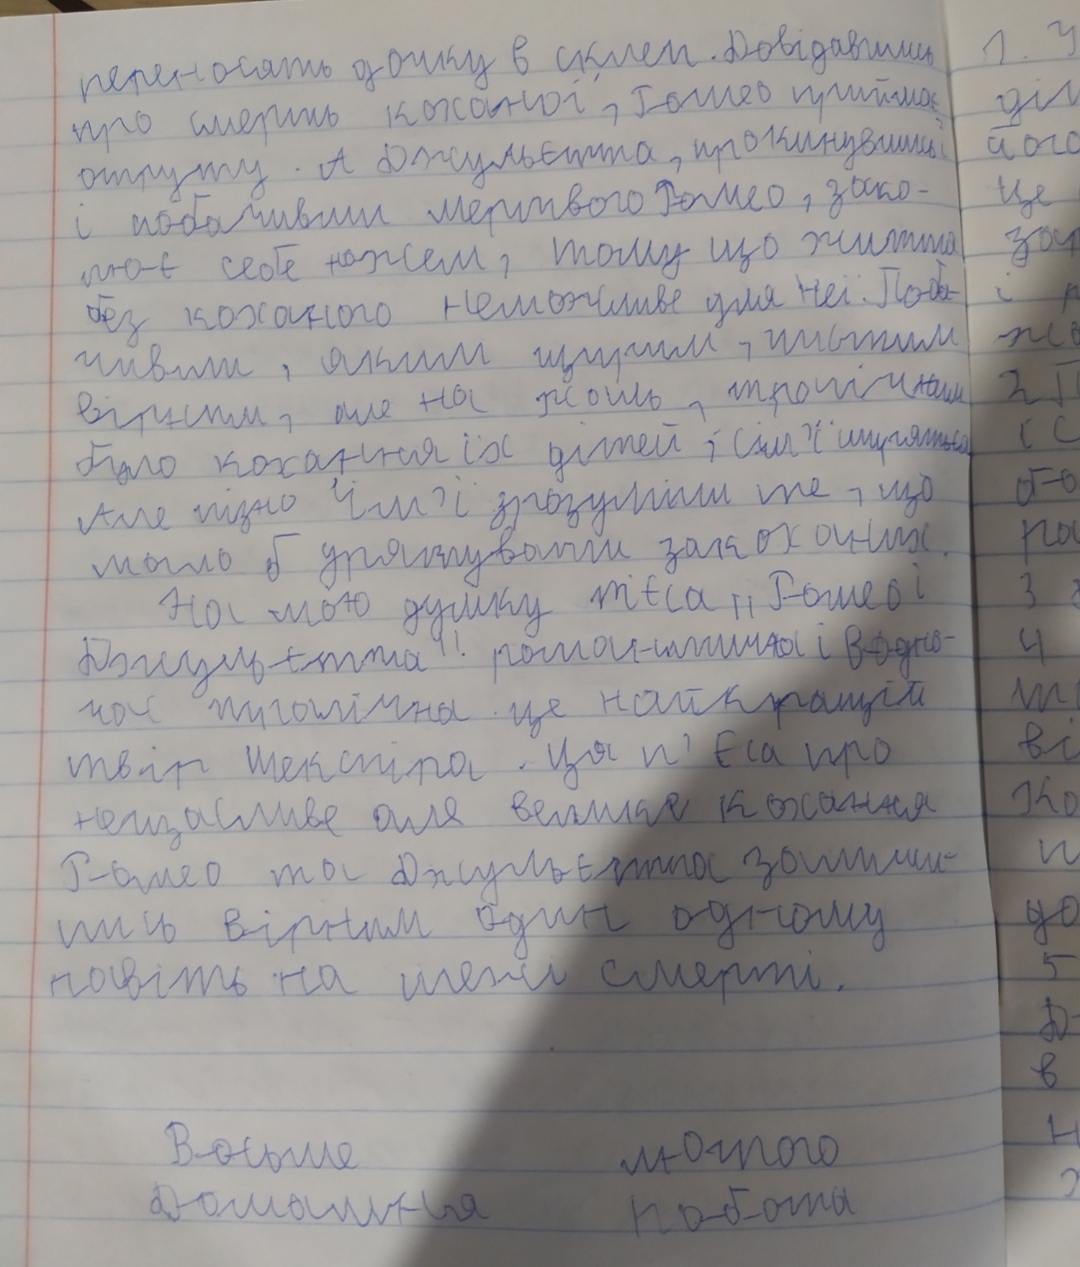 переносять дочку в склеп. Довідавшись
про смерть коханої, Ромео приймає
отруту. А Джульєтта, прокинувшись
і побачивши мертвого Ромео, зако-
лює себе ножем, тому що життя
без коханого неможливе для неї. Поба-
чивши, яким щирим, чистим
вірним, але на жаль, трагічним
було кохання їх дітей, сім'ї миряться
Але пізно сім'ї зрозуміли те, що
мало б урятувати закоханих.
На мою думку п'єса "Ромео і
Джульєтта" романтична і водно-
час трагічна це найкращій
твір Шекспіра. Ця п'єса про
нещасливе але велике кохання
Ромео та Джульєтта залиши-
лись вірним один одному
навіть на межі смерті.
Восьме лютого
Домашня робота
1.
діл
його
це
за
і
2 П
і с
3
4
ві
Ко
до
5
в